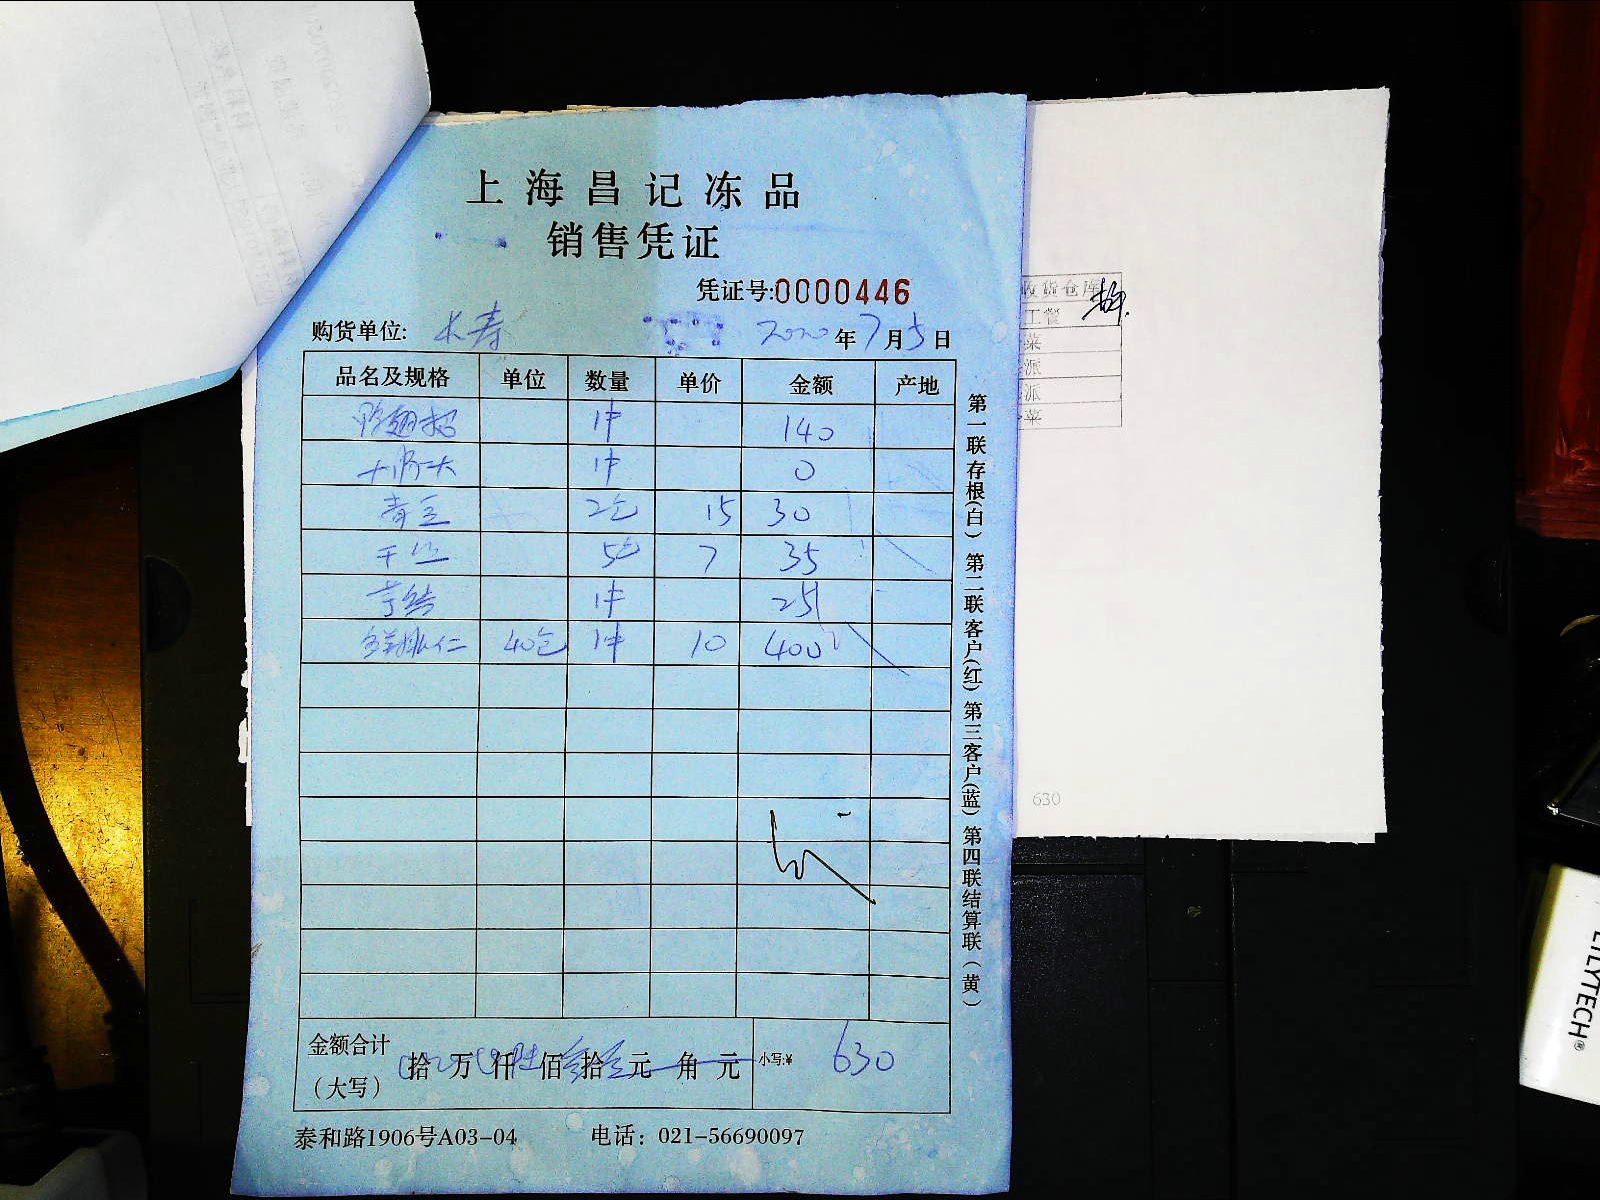 上海昌记冻品
销售凭证
凭证号:0000446
购货单位: 长寿 2020年7月5日
品名及规格 单位 数量 单价 金额 产地
鸭翅 1件 140
1件 0
青豆 2包 15 30
干 5包 7 35
1件 25
鲜桃仁 40包 1件 10 400
金额合计
(大写) 拾 万 仟 陆佰叁拾 元 角 元 小写:¥ 630
泰和路1906号A03-04 电话: 021-56690097
第一联存根(白) 第二联客户(红) 第三客户(蓝) 第四联结算联(黄)
收货仓库
工餐
菜
派
派
菜
630
LILYTECH®